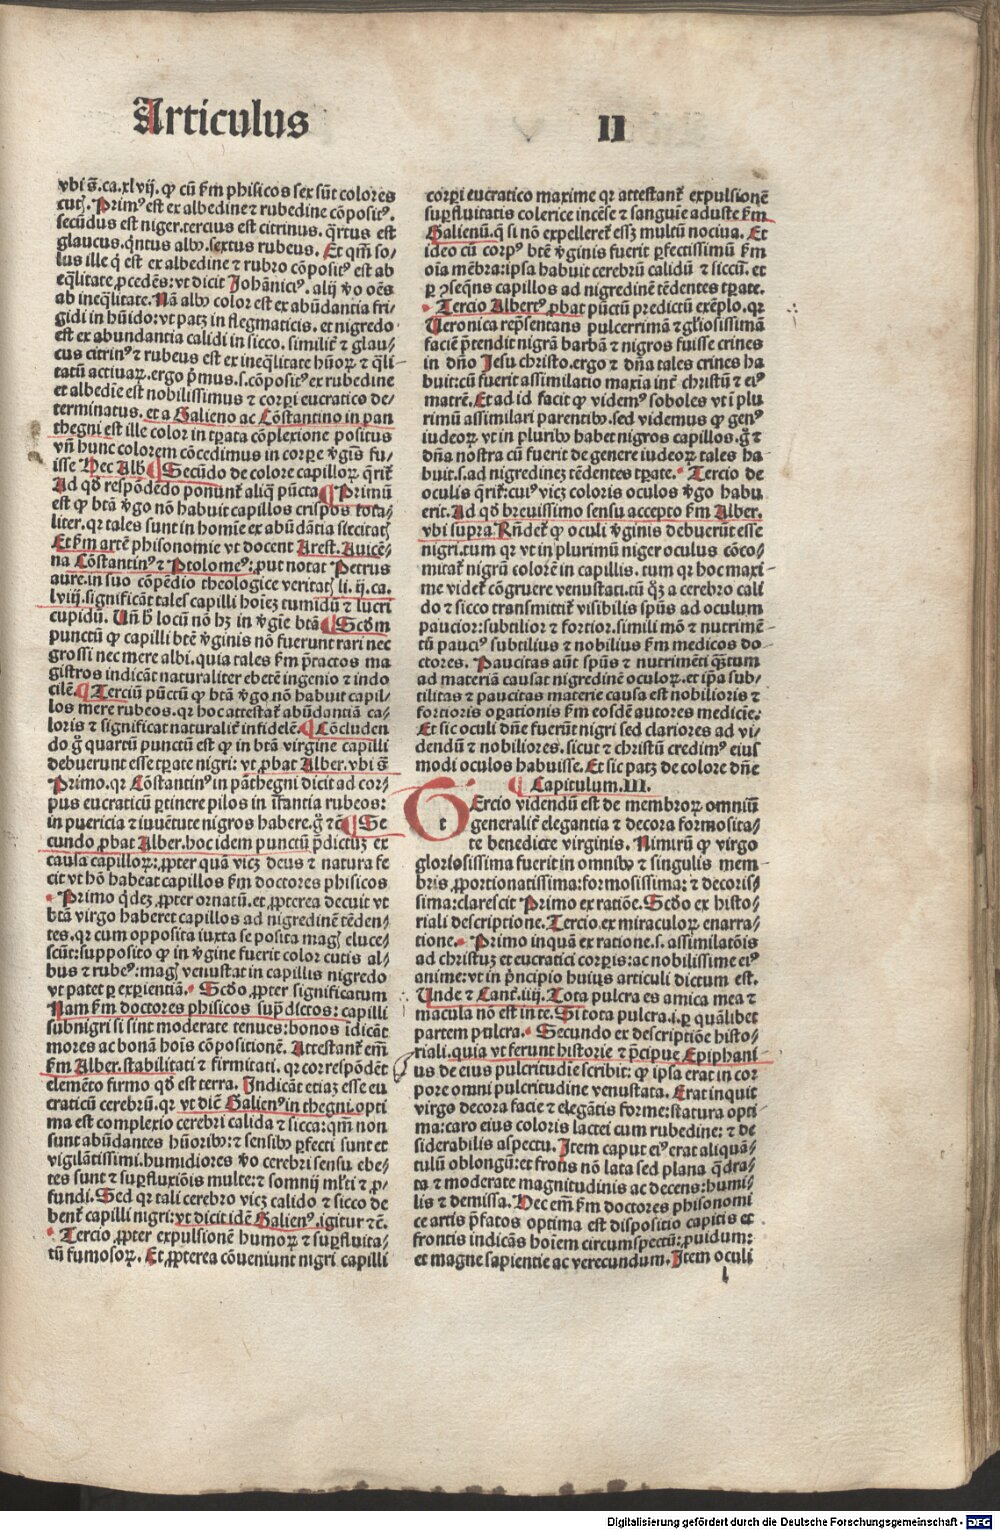 Articulus
II
vbi s̄.ca.xlvij. ꝙ cū ẜm phisicos sex sūt colores
cutꝭ. Primꝰ est ex albedine ⁊ rubedine cōpositꝰ.
secūdus est niger. tercius est citrinus. q̄rtus est
glaucus. q̄ntus albꝰ. sextus rubeus. Et qm̄ so/
lus ille q̇ est ex albedine ⁊ rubro cōpositꝰ est ab
eq̄litate ꝓcedēs: vt dicit Johāniciꝰ. alij v̄o oēs
ab ineq̄litate. Nā albꝰ color est ex abūdantia fri/
gidi in hūido: vt patꝫ in flegmaticis. et nigredo
est ex abundantia calidi in sicco. similit̄ ⁊ glau/
cus citrinꝰ ⁊ rubeus est ex ineq̄litate hūoꝝ ⁊ q̄li/
tatū actiuaꝝ. ergo p̄mus .s. cōpositꝰ ex rubedine
et albedīe est nobilissimus ⁊ corpi eucratico de/
terminatus. et a Galieno ac Cōstantino in pan
thegni est ille color in tꝑata cōplexione positus
vn̄ hunc colorem cōcedimus in corꝑe v̄gīs fu/
isse Hec Alb̄ ¶ Secūdo de colore capilloꝝ q̄rit̄
Ad qd̄ respōdēdo ponunt̄ aliq̄ pūcta ¶ Primū
est ꝙ btā v̄go nō habuit capillos crispos tota/
liter. qꝛ tales sunt in homīe ex abūdātia siccitatꝭ
Et ẜm artē phisonomie vt docent Arest. Auicē/
na Cōstantinꝰ ⁊ Ptolomeꝰ: put notat Petrus
aure. in suo cōpēdio theologice veritatꝭ li. ij. ca.
lviij. significāt tales capilli hoīeꝫ tumidū ⁊ lucri
cupidū. Un̄ b̄ locū nō hꝫ in v̄gīe btā ¶ Scd̄m
punctū ꝙ capilli btē v̄ginis nō fuerunt rari nec
grossi nec mere albi. quia tales ẜm p̄tactos ma
gistros indicāt naturaliter ebetē ingenio ⁊ indo
cilē. ¶ Terciū pūctū ꝙ btā v̄go nō habuit capil/
los mere rubeos. qꝛ hoc attestat̄ abūdantiā ca/
loris ⁊ significat naturalit̄ infidelē. ¶ Cōcluden
do g̊ quartū punctū est ꝙ in btā virgine capilli
debuerunt esse tꝑate nigri: vt ꝓbat Alber. vbi s̄
Primo. qꝛ Cōstantinꝰ in pāthegni dicit ad cor/
pus eucraticū ꝑtinere pilos in īfantia rubeos:
in puericia ⁊ iuuētute nigros habere. g̊ ⁊c̄ ¶ Se
cundo ꝓbat Alber. hoc idem punctū p̄dictuꝫ ex
causa capilloꝝ: ꝓpter quā vicꝫ deus ⁊ natura fe
cit vt hō habeat capillos ẜm doctores phisicos
Primo q̇deꝫ ꝓpter ornatū. et ꝓpterea decuit vt
btā virgo haberet capillos ad nigredinē tēden/
tes. qꝛ cum opposita iuxta se posita magꝭ eluce/
scūt: supposito ꝙ in v̄gine fuerit color cutis al/
bus ⁊ rubeꝰ: magꝭ venustat in capillis nigredo
vt patet ꝑ experientiā. Scd̄o ꝓpter significatum
Nam ẜm doctores phisicos supͣdictos: capilli
subnigri si sint moderate tenues: bonos īdicāt
mores ac bonā hoīs cōpositionē. Attestant̄ em̄
ẜm Alber. stabilitati ⁊ firmitati. qꝛ correspōdēt
elemēto firmo qd̄ est terra. Indicāt etiaꝫ esse eu
craticū cerebrū. qꝛ vt dic̄ Galienꝰ in thegni. opti
ma est complexio cerebri calida ⁊ sicca: qm̄ non
sunt abūdantes hūoribꝰ: ⁊ sensibꝰ ꝑfecti sunt et
vigilātissimi. humidiores v̄o cerebri sensu ebe/
tes sunt ⁊ suꝑfluxiōis multe: ⁊ somnij ml̄ti ⁊ ꝓ/
fundi. Sed qꝛ tali cerebro vicꝫ calido ⁊ sicco de
bent̄ capilli nigri: vt dicit idē Galienꝰ. igitur ⁊c̄.
Tercio ꝓpter expulsionē humoꝝ ⁊ suꝑfluita/
tū fumosoꝝ. Et ꝓpterea cōueniunt nigri capilli
corpi eucratico maxime qꝛ attestant̄ expulsionē
suꝑfluitatis colerice incēse ⁊ sanguīe aduste ẜm
Galienū. q̄ si nō expelleret̄ essꝫ multū nociua. Et
ideo cū corpꝰ btē v̄ginis fuerit ꝑfectissimū ẜm
oīa mēbra: ipsa habuit cerebrū calidū ⁊ siccū. et
ꝑ ꝯseq̄ns capillos ad nigredinē tēdentes tꝑate.
Tercio Albertꝰ ꝓbat pūctū predictū exēplo. qꝛ
Ueronica rep̄sentans pulcerrimā ⁊ gl̄iosissimā
faciē p̄tendit nigrā barbā ⁊ nigros fuisse crines
in dn̄o Jesu christo. ergo ⁊ dn̄a tales crines ha
buit: cū fuerit assimilatio maxīa int̄ christū ⁊ eiꝰ
matrē. Et ad id facit ꝙ videmꝰ soboles vt ī plu
rimū assimilari parentibꝰ. sed videmus ꝙ genꝰ
iudeoꝝ vt in pluribꝰ habet nigros capillos. g̊ ⁊
dn̄a nostra cū fuerit de genere iudeoꝝ tales ha/
buit .s. ad nigredineꝫ tēdentes tꝑate. Tercio de
oculis q̄rit̄: cuiꝰ vicꝫ coloris oculos v̄go habu
erit. Ad qd̄ breuissimo sensu accepto ẜm Alber.
vbi supra Rn̄det̄ ꝙ oculi v̄ginis debuerūt esse
nigri. tum qꝛ vt in plurimū niger oculus cōco/
mitat̄ nigrū colorē in capillis. tum qꝛ hoc maxi/
me videt̄ cōgruere venustati. tū qꝫ a cerebro cali
do ⁊ sicco transmittit̄ visibilis spūs ad oculum
paucior: subtilior ⁊ fortior. simili mō ⁊ nutrimē/
tū pauciꝰ subtilius ⁊ nobilius ẜm medicos do/
ctores. Paucitas aūt spūs ⁊ nutrimēti qꝫtum
ad materiā causat nigredinē oculoꝝ. et ip̄a sub/
tilitas ⁊ paucitas materie causa est nobilioris ⁊
fortioris oꝑationis ẜm eosdē autores medicīe.
Et sic oculi dn̄e fuerūt nigri sed clariores ad vi/
dendū ⁊ nobiliores. sicut ⁊ christū credimꝰ eius
modi oculos habuisse. Et sic patꝫ de colore dn̄e
¶ Capitulum. III.
Tercio videndū est de membroꝝ omniū
generalit̄ elegantia ⁊ decora formosita/
te benedicte virginis. Nimirū ꝙ virgo
gloriosissima fuerit in omnibꝰ ⁊ singulis mem/
bris ꝓportionatissima: formosissima: ⁊ decoris/
sima: clarescit Primo ex ratiōe. Scd̄o ex histo/
riali descriptione. Tercio ex miraculoꝝ enarra/
tione. Primo inquā ex ratione .s. assimilatōis
ad christuꝫ et eucratici corꝑis: ac nobilissime eiꝰ
anime: vt in p̄ncipio huiꝰ articuli dictum est.
Unde ⁊ Cant̄. iiij. Tota pulcra es amica mea ⁊
macula nō est in te. Si tota pulcra .i. ꝑ quālibet
partem pulcra. Secundo ex descriptiōe histo/
riali. quia vt ferunt historie ⁊ p̄cipue Epiphani/
us de eius pulcritudīe scribit: ꝙ ipsa erat in cor
pore omni pulcritudine venustata. Erat inquit
virgo decora facie ⁊ elegātis forme: statura opti/
ma: caro eius coloris lactei cum rubedine: ⁊ de
siderabilis aspectu. Item caput eiꝰ erat aliquā/
tulū oblongū: et frons nō lata sed plana q̄dra/
ta ⁊ moderate magnitudinis ac decens: humi/
lis ⁊ demissa. Hec em̄ ẜm doctores phisonomi
ce artis p̄fatos optima est dispositio capitis et
frontis indicās hoīem circumspectū: ꝓuidum:
et magne sapientie ac verecundum. Item oculi
l
Digitalisierung gefördert durch die Deutsche Forschungsgemeinschaft - DFG